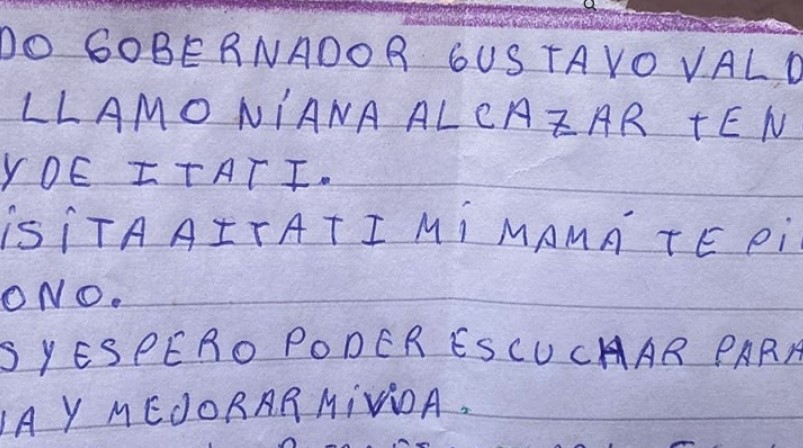 DO GOBERNADOR GUSTAVO VALD
LLAMO NÍANA ALCAZAR TEN
Y DE ITATI.
ISITA A ITATI MI MAMÁ TE PI
ONO.
S Y ESPERO PODER ESCUCHAR PARA
IA Y MEJORAR MI VIDA.